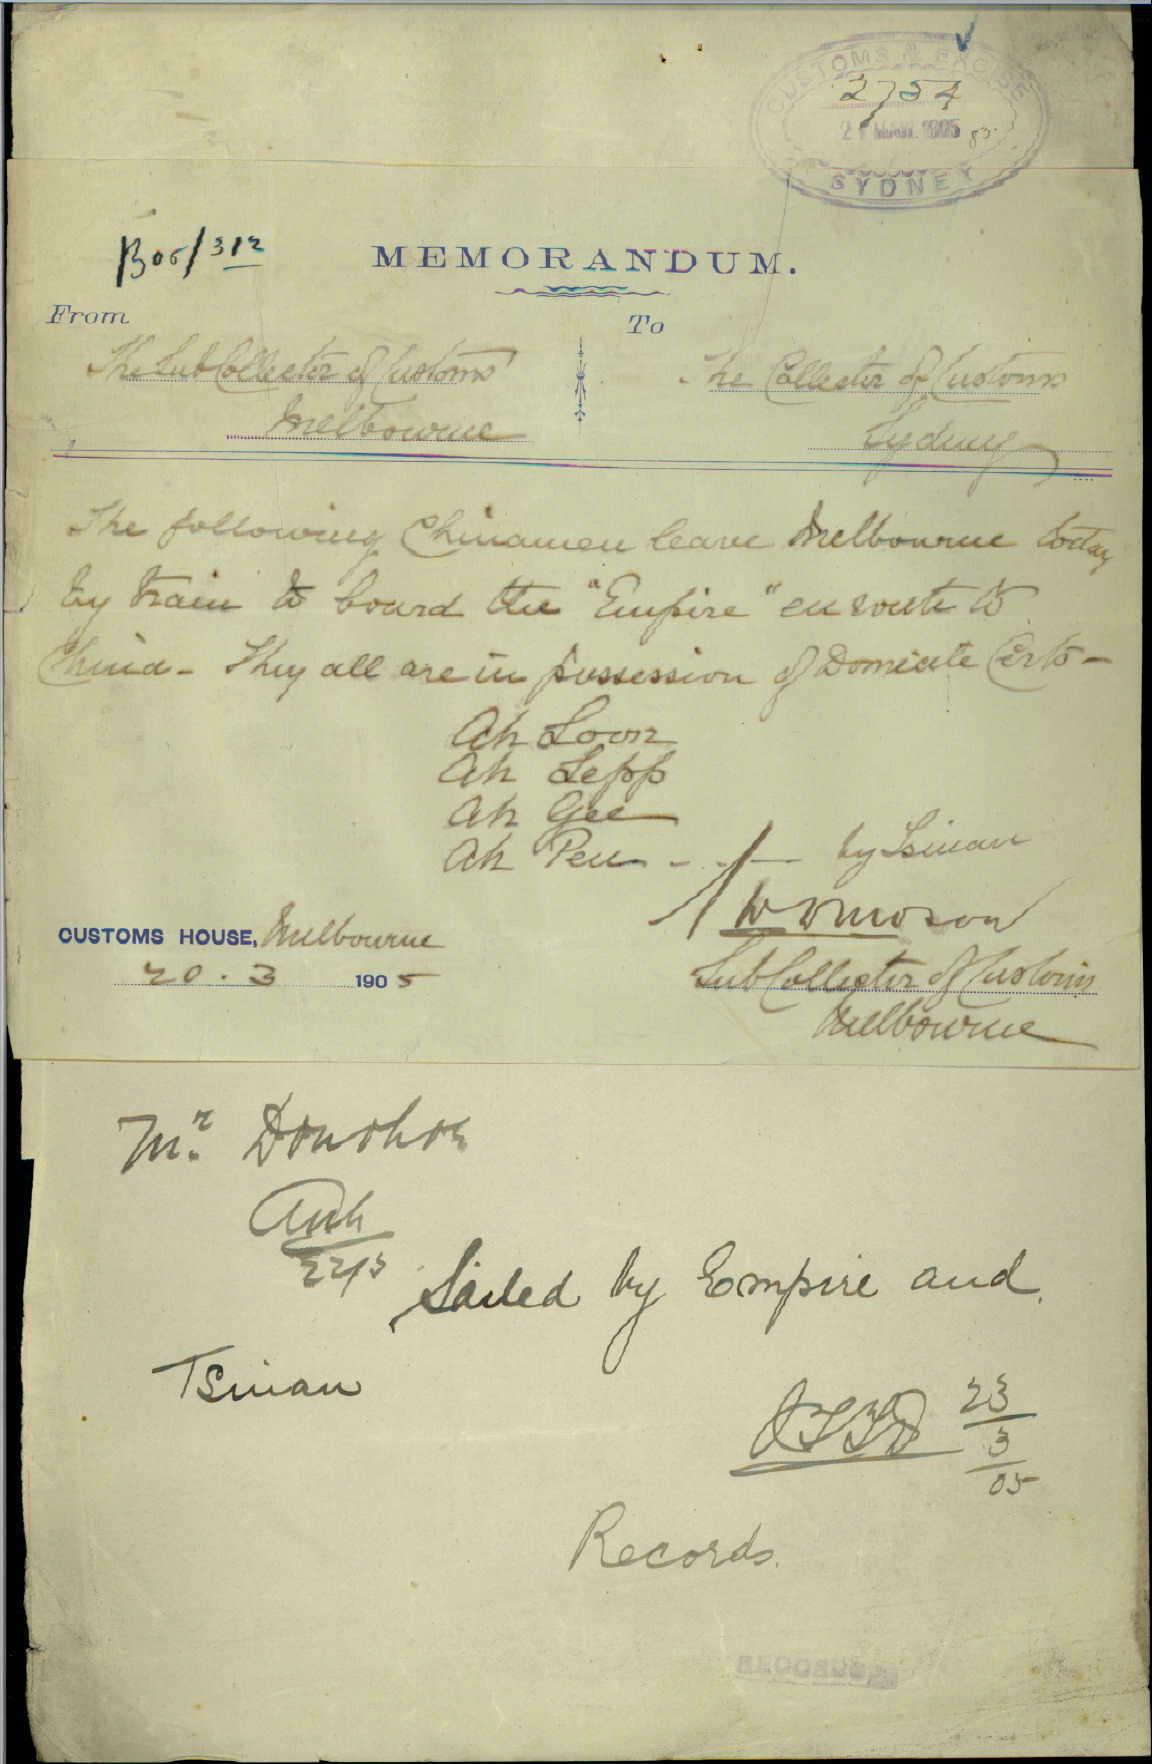 CUSTOMS & EXCISE
2754
21 MAR. 1905
SYDNEY
B05/312
MEMORANDUM.
From
To
The Sub Collector of Customs
Melbourne
The Collector of Customs
Sydney
The following Chinamen leave Melbourne today
by train to board the "Empire" en route to
China - They all are in possession of Domicile Certs -
Ah Loon
Ah Lepp
Ah Gee
Ah Pen - - - by Tsinan
Sub Collector of Customs
Melbourne
CUSTOMS HOUSE, Melbourne
20 . 3 1905
Mr. Donohoe
Sailed by Empire and
Tsinan
23
3
05
Records.
RECORDS